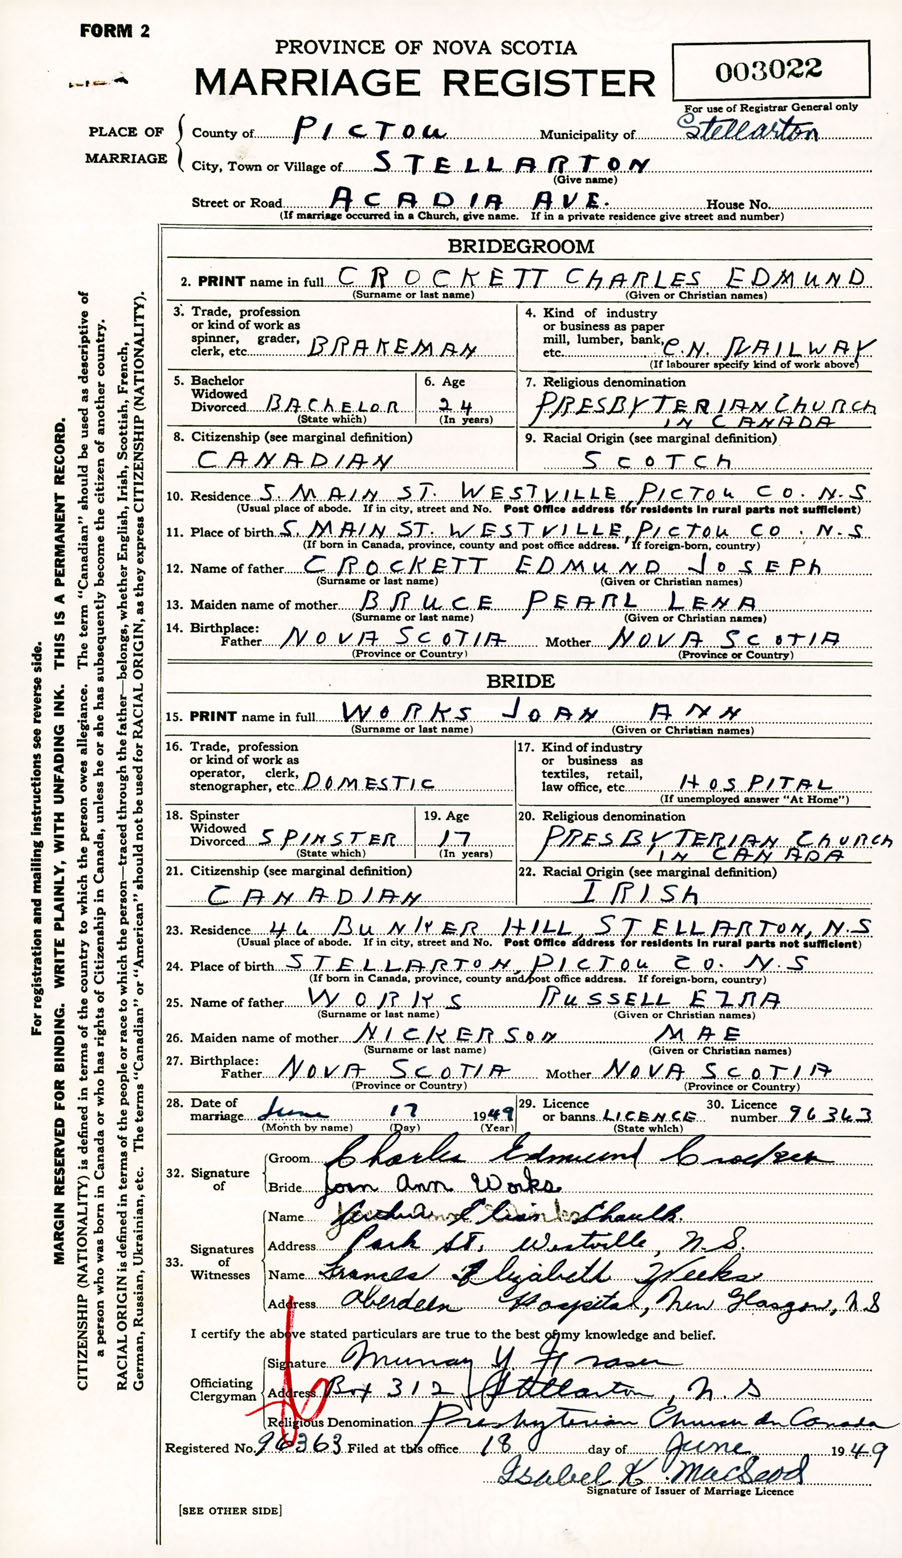 FORM 2
PROVINCE OF NOVA SCOTIA
MARRIAGE REGISTER
003022
For use of Registrar General only
PLACE OF MARRIAGE
County of PICTOU Municipality of Stellarton
City, Town or Village of STELLARTON
(Give name)
Street or Road ACADIA AVE. House No.
(If marriage occurred in a Church, give name. If in a private residence give street and number)
BRIDEGROOM
2. PRINT name in full CROCKETT CHARLES EDMUND
(Surname or last name) (Given or Christian names)
3. Trade, profession or kind of work as spinner, grader, clerk, etc. BRAKEMAN
4. Kind of industry or business as paper mill, lumber, bank, etc. C.N. RAILWAY
(If labourer specify kind of work above)
5. Bachelor Widowed Divorced BACHELOR
(State which)
6. Age 24
(In years)
7. Religious denomination
PRESBYTERIAN CHURCH
IN CANADA
8. Citizenship (see marginal definition)
CANADIAN
9. Racial Origin (see marginal definition)
SCOTCH
10. Residence S. MAIN ST. WESTVILLE, PICTOU CO. N.S
(Usual place of abode. If in city, street and No. Post Office address for residents in rural parts not sufficient)
11. Place of birth S. MAIN ST. WESTVILLE, PICTOU CO. N.S
(If born in Canada, province, county and post office address. If foreign-born, country)
12. Name of father CROCKETT EDMUND JOSEPH
(Surname or last name) (Given or Christian names)
13. Maiden name of mother BRUCE PEARL LENA
(Surname or last name) (Given or Christian names)
14. Birthplace:
Father NOVA SCOTIA Mother NOVA SCOTIA
(Province or Country) (Province or Country)
BRIDE
15. PRINT name in full WORKS JOAN ANN
(Surname or last name) (Given or Christian names)
16. Trade, profession or kind of work as operator, clerk, stenographer, etc. DOMESTIC
17. Kind of industry or business as textiles, retail, law office, etc. HOSPITAL
(If unemployed answer "At Home")
18. Spinster Widowed Divorced SPINSTER
(State which)
19. Age 17
(In years)
20. Religious denomination
PRESBYTERIAN CHURCH
IN CANADA
21. Citizenship (see marginal definition)
CANADIAN
22. Racial Origin (see marginal definition)
IRISH
23. Residence 46 BUNKER HILL, STELLARTON, N.S
(Usual place of abode. If in city, street and No. Post Office address for residents in rural parts not sufficient)
24. Place of birth STELLARTON, PICTOU CO. N.S
(If born in Canada, province, county and post office address. If foreign-born, country)
25. Name of father WORKS RUSSELL EZRA
(Surname or last name) (Given or Christian names)
26. Maiden name of mother NICKERSON MAE
(Surname or last name) (Given or Christian names)
27. Birthplace:
Father NOVA SCOTIA Mother NOVA SCOTIA
(Province or Country) (Province or Country)
28. Date of marriage June 17 1949
(Month by name) (Day) (Year)
29. Licence or banns LICENCE
(State which)
30. Licence number 96363
32. Signature of
Groom Charles Edmund Crockett
Bride Joan Ann Works
33. Signatures of Witnesses
Name Chaulk
Address Park St. Westville, N.S.
Name Frances Elizabeth Weeks
Address Aberdeen Hospital, New Glasgow, N.S
I certify the above stated particulars are true to the best of my knowledge and belief.
Officiating Clergyman
Signature Murray Y Fraser
Address Box 312, Stellarton, N.S
Religious Denomination Presbyterian Church in Canada
Registered No. 96363 Filed at this office 18 day of June 1949
Isabel K. MacLeod
Signature of Issuer of Marriage Licence
[SEE OTHER SIDE]
For registration and mailing instructions see reverse side.
MARGIN RESERVED FOR BINDING. WRITE PLAINLY, WITH UNFADING INK. THIS IS A PERMANENT RECORD.
CITIZENSHIP (NATIONALITY) is defined in terms of the country to which the person owes allegiance. The term "Canadian" should be used as descriptive of
a person who was born in Canada or who has rights of Citizenship in Canada, unless he or she has subsequently become the citizen of another country.
RACIAL ORIGIN is defined in terms of the people or race to which the person—traced through the father—belongs, whether English, Irish, Scottish, French,
German, Russian, Ukrainian, etc. The terms "Canadian" or "American" should not be used for RACIAL ORIGIN, as they express CITIZENSHIP (NATIONALITY).